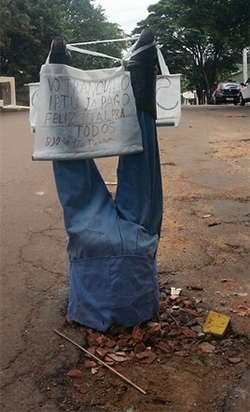 VO TRANQUILO
IPTU JA PAGO
FELIZ NATAL PRA
TODOS